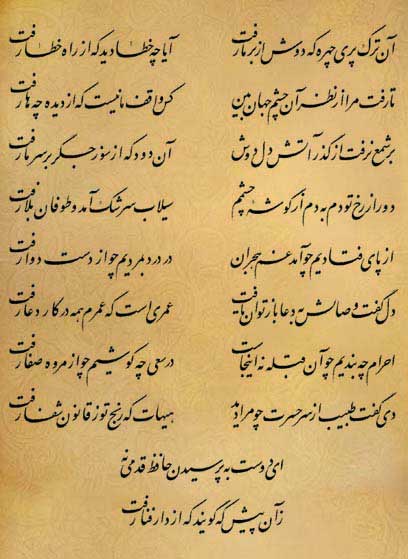 آن ترک پری چهره که دوش از بر ما رفت آیا چه خطا دید که از راه خطا رفت
تا رفت مرا از نظر آن چشم جهان بین کس واقف ما نیست که از دیده چه‌ها رفت
بر شمع نرفت از گذر آتش دل دوش آن دود که از سوز جگر بر سر ما رفت
دور از رخ تو دم به دم از گوشه چشمم سیلاب سرشک آمد و طوفان بلا رفت
از پای فتادیم چو آمد غم هجران در درد بمردیم چو از دست دوا رفت
دل گفت وصالش به دعا باز توان یافت عمری است که عمرم همه در کار دعا رفت
احرام چه بندیم چو آن قبله نه اینجاست در سعی چه کوشیم چو از مروه صفا رفت
دی گفت طبیب از سر حسرت چو مرا دید هیهات که رنج تو ز قانون شفا رفت
ای دوست به پرسیدن حافظ قدمی نه
زآن پیش که گویند که از دار فنا رفت